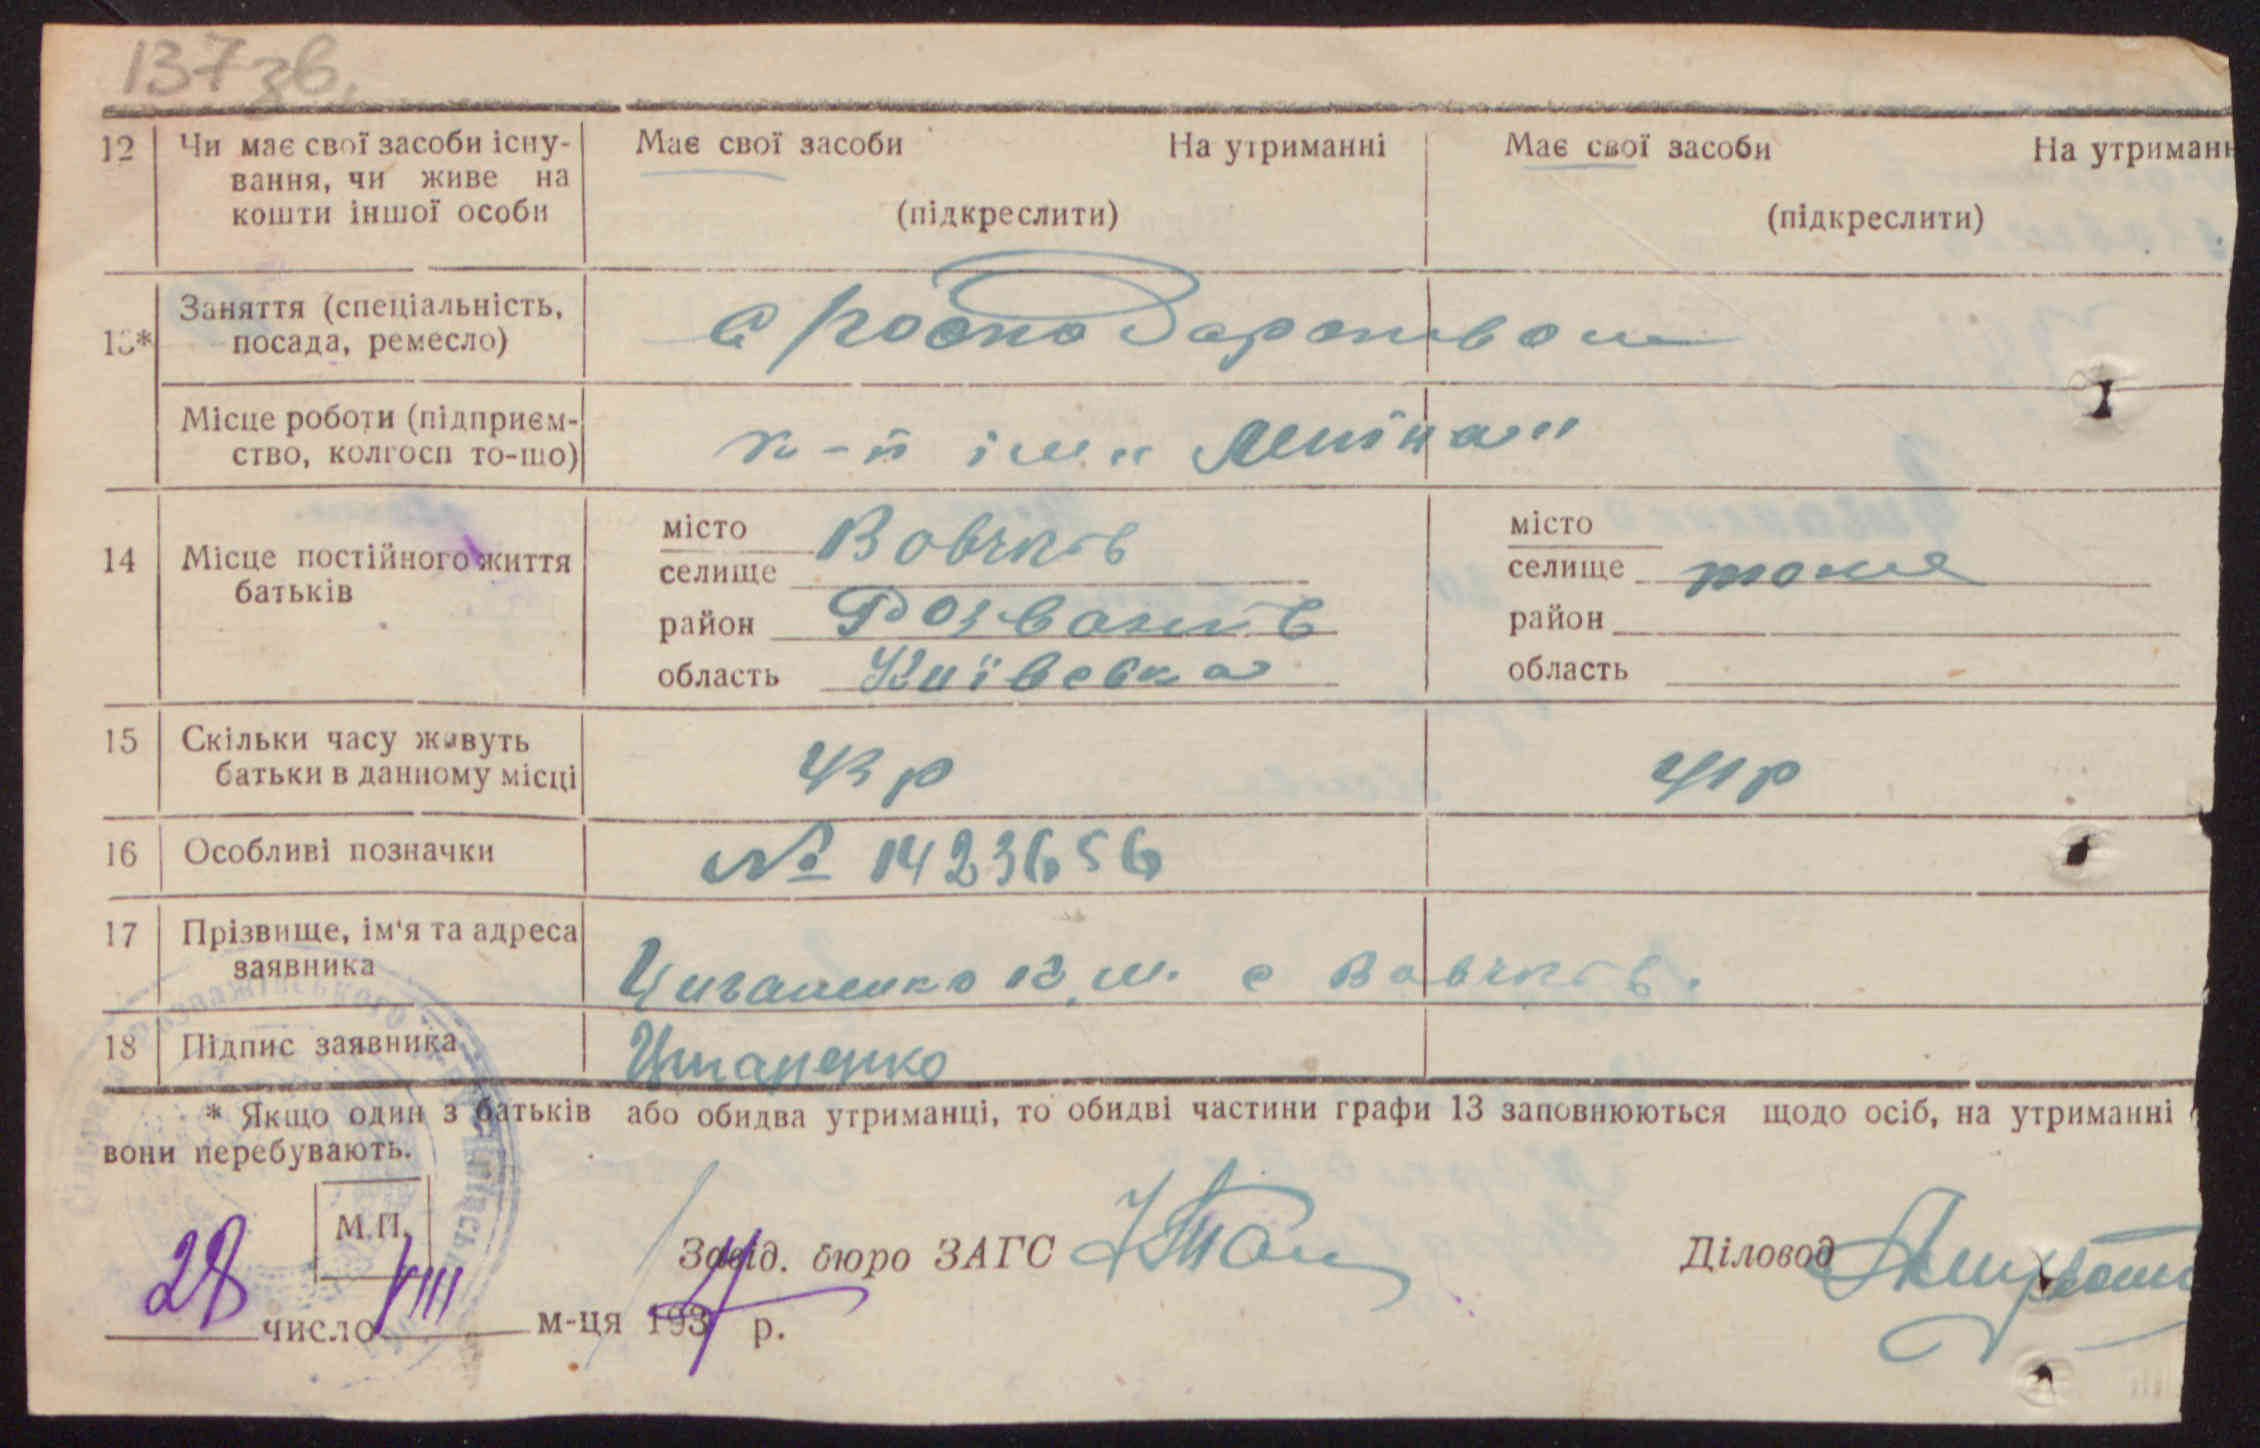 137 зв.
12 Чи має свої засоби існу- Має свої засоби На утриманні Має свої засоби На утриманн
вання, чи живе на
кошти іншої особи (підкреслити) (підкреслити)
Заняття (спеціальність,
13* посада, ремесло) с господарством
Місце роботи (підприєм- к-п ім „Леніна"
ство, колгосп то-що)
місто Вовчків місто
14 Місце постійного життя селище селище тоже
батьків район Розважів район
область Київська область
15 Скільки часу живуть
батьки в данному місці 43 р 41 р
16 Особливі позначки № 1423656
17 Прізвище, ім'я та адреса
заявника Циганенко М. с Вовчків.
18 Підпис заявника Циганенко
* Якщо один з батьків або обидва утриманці, то обидві частини графи 13 заповнюються щодо осіб, на утриманні
вони перебувають.
М.П.
Завід. бюро ЗАГС Діловод
28 число VIII м-ця 1934 р.